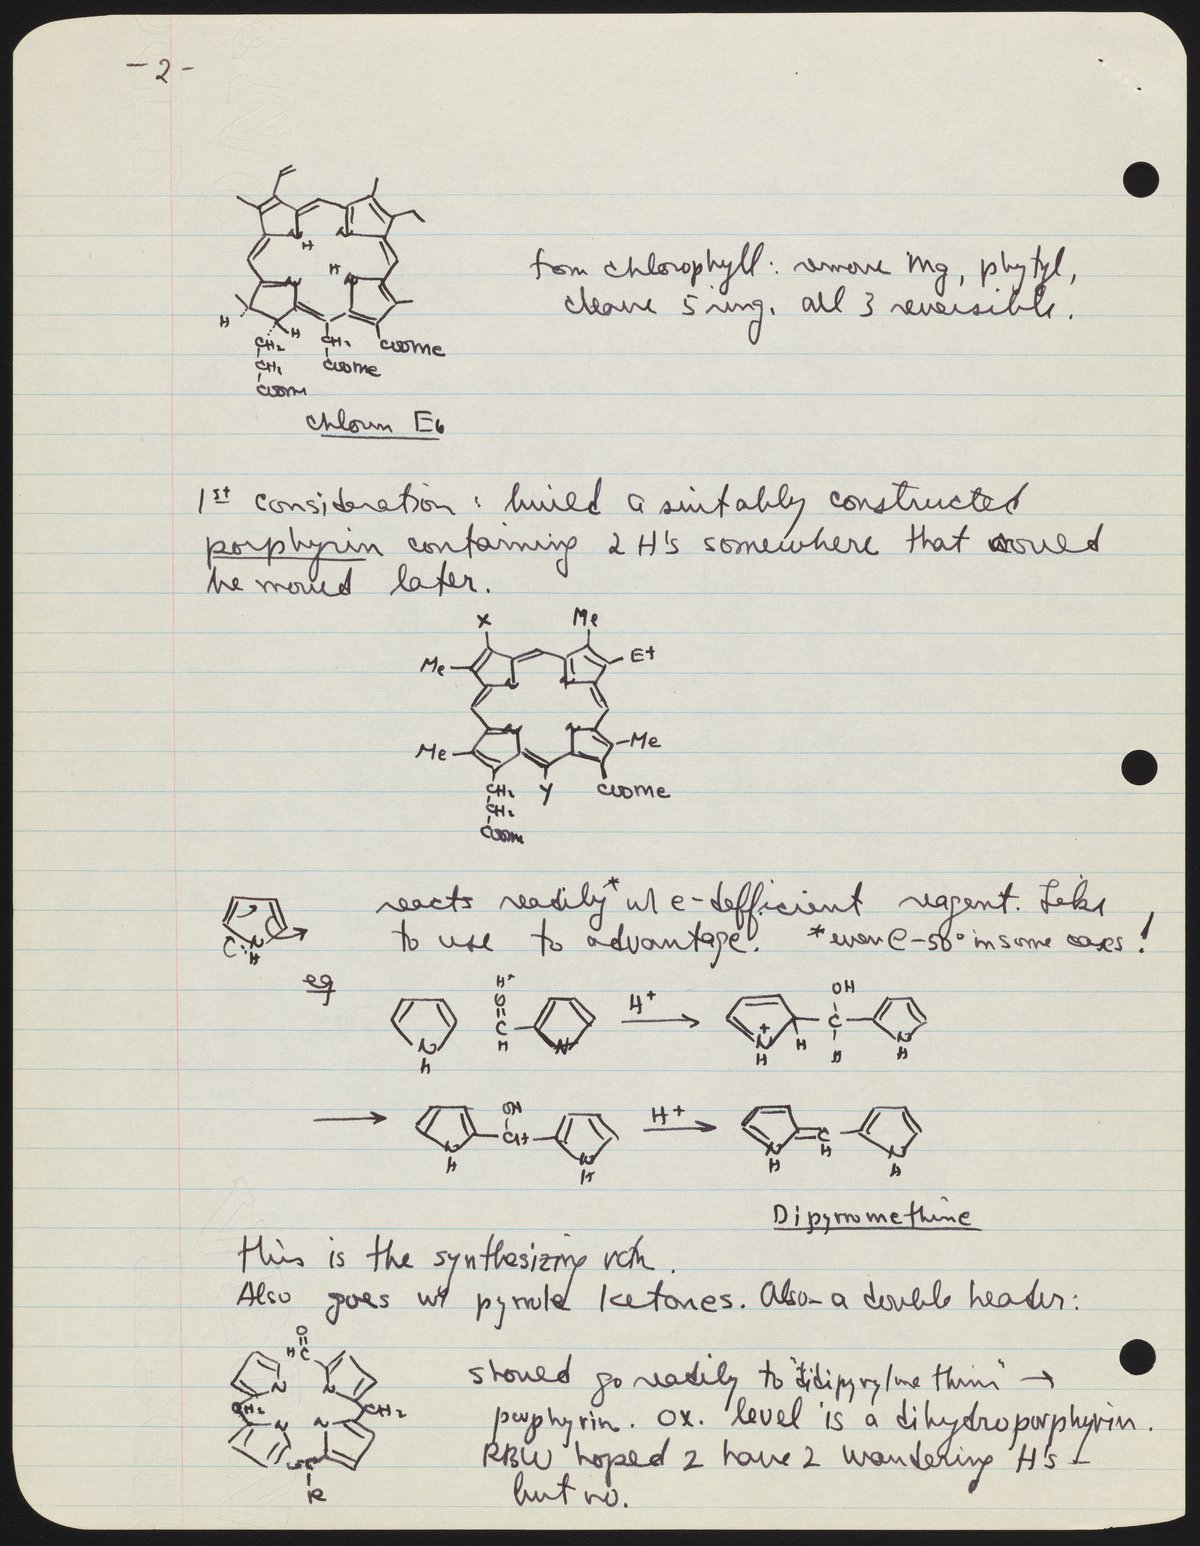 - 2 -
N
N
H
H
N
N
H
H
CH2
CH2
COOMe
CH2
CH2
COOMe
COOMe
chlorin E6
from chlorophyll: remove Mg, phytyl,
cleave 5 ring. all 3 reversible.
1st consideration: build a suitably constructed
porphyrin containing 2 H's somewhere that could
be moved later.
X
Me
Me
Et
N
N
N
N
Me
Me
CH2
Y
COOMe
CH2
COOMe
reacts readily* w/ e-defficient reagent. Like
to use to advantage! *even @ -50° in some cases!
N
H
eg
N
H
H+
O
C
H
N
H+
N+
H
H
OH
C
H
N
H
N
H
OH
CH
N
H
H+
N
H
C
H
N
H
Dipyrromethine
this is the synthesizing rctn.
Also goes w/ pyrrole ketones. Also - a double header:
O
HC
N
N
CH2
CH2
N
N
C
R
should go readily to "didipyrylmethine" →
porphyrin. ox. level is a dihydroporphyrin.
RBW hoped 2 have 2 wandering H's -
but no.